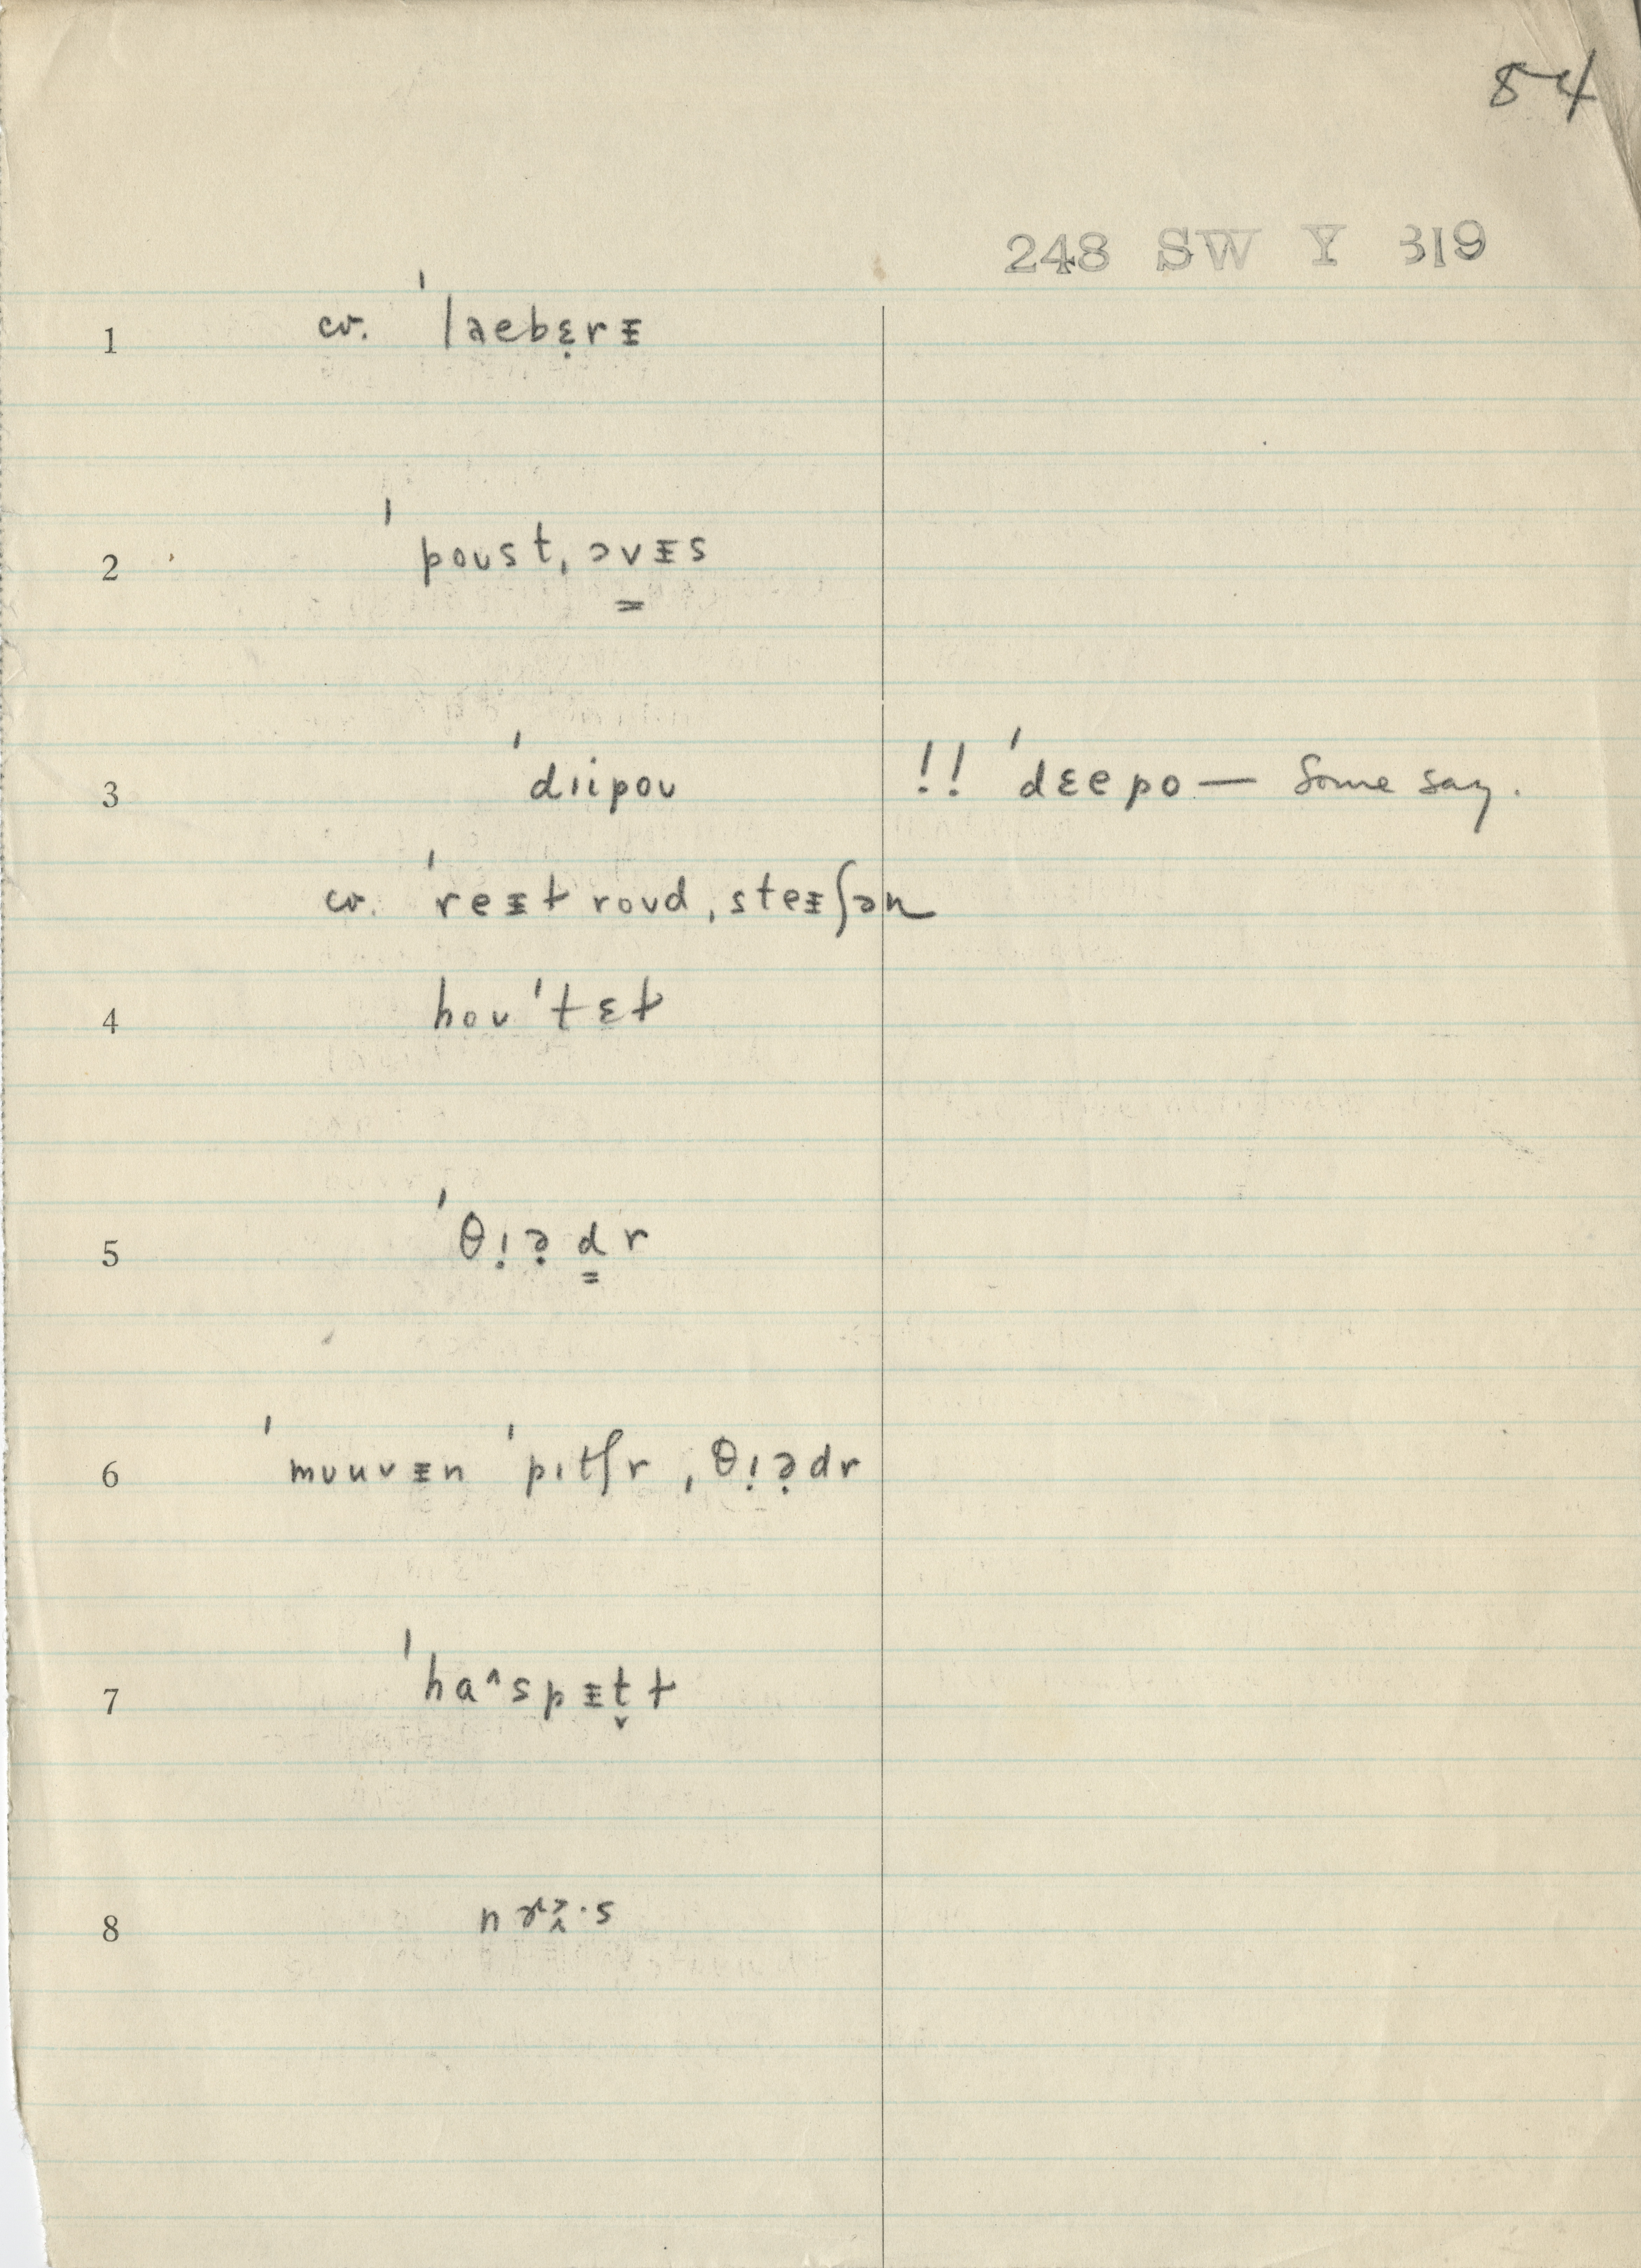 84
248 SW Y 319
1 cv. ˈlaebɛ̣rᵻ
2 ˈpoust ˌɔvᵻs
3 ˈdɪipoʊ !! ˈdɛepo — Some say.
cv. ˈreᵻt roʊd ˌsteᵻʃən
4 hoʊˈtɛt
5 ˈθɪ̣ə̣d̳r
6 ˈmʊuvᵻn ˈpɪtʃr ˌθɪ̣ə̣dr
7 ˈha^spᵻt̬t
8